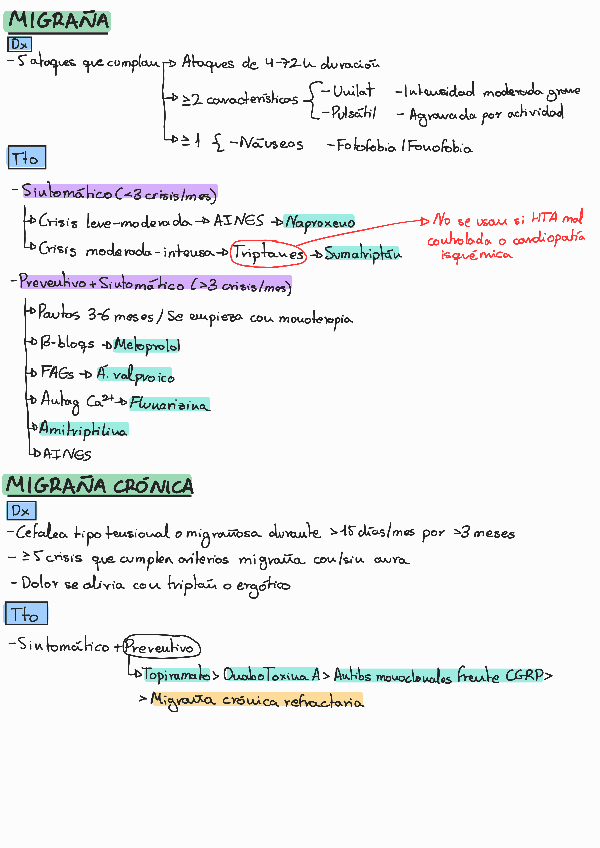 MIGRAÑA
Dx
- 5 ataques que cumplan → Ataques de 4-72h duración
→ ≥2 características { - Unilat - Intensidad moderada grave
- Pulsátil - Agravada por actividad
→ ≥1 { - Náuseas - Fotofobia/Fonofobia
Tto
- Sintomático (<3 crisis/mes)
→ Crisis leve-moderada → AINES → Naproxeno
→ Crisis moderada-intensa → Triptanes → Sumatriptán
→ No se usan si HTA mal
controlada o cardiopatía
isquémica
- Preventivo + Sintomático (>3 crisis/mes)
→ Pautas 3-6 meses / Se empieza con monoterapia
→ β-bloqs → Metoprolol
→ FAGs → Á. valproico
→ Antag Ca²⁺ → Flunarizina
→ Amitriptilina
→ AINES
MIGRAÑA CRÓNICA
Dx
- Cefalea tipo tensional o migrañosa durante >15 días/mes por >3 meses
- ≥5 crisis que cumplen criterios migraña con/sin aura
- Dolor se alivia con triptán o ergótico
Tto
- Sintomático + Preventivo
→ Topiramato > OnaboToxina A > Antibs monoclonales frente CGRP >
> Migraña crónica refractaria